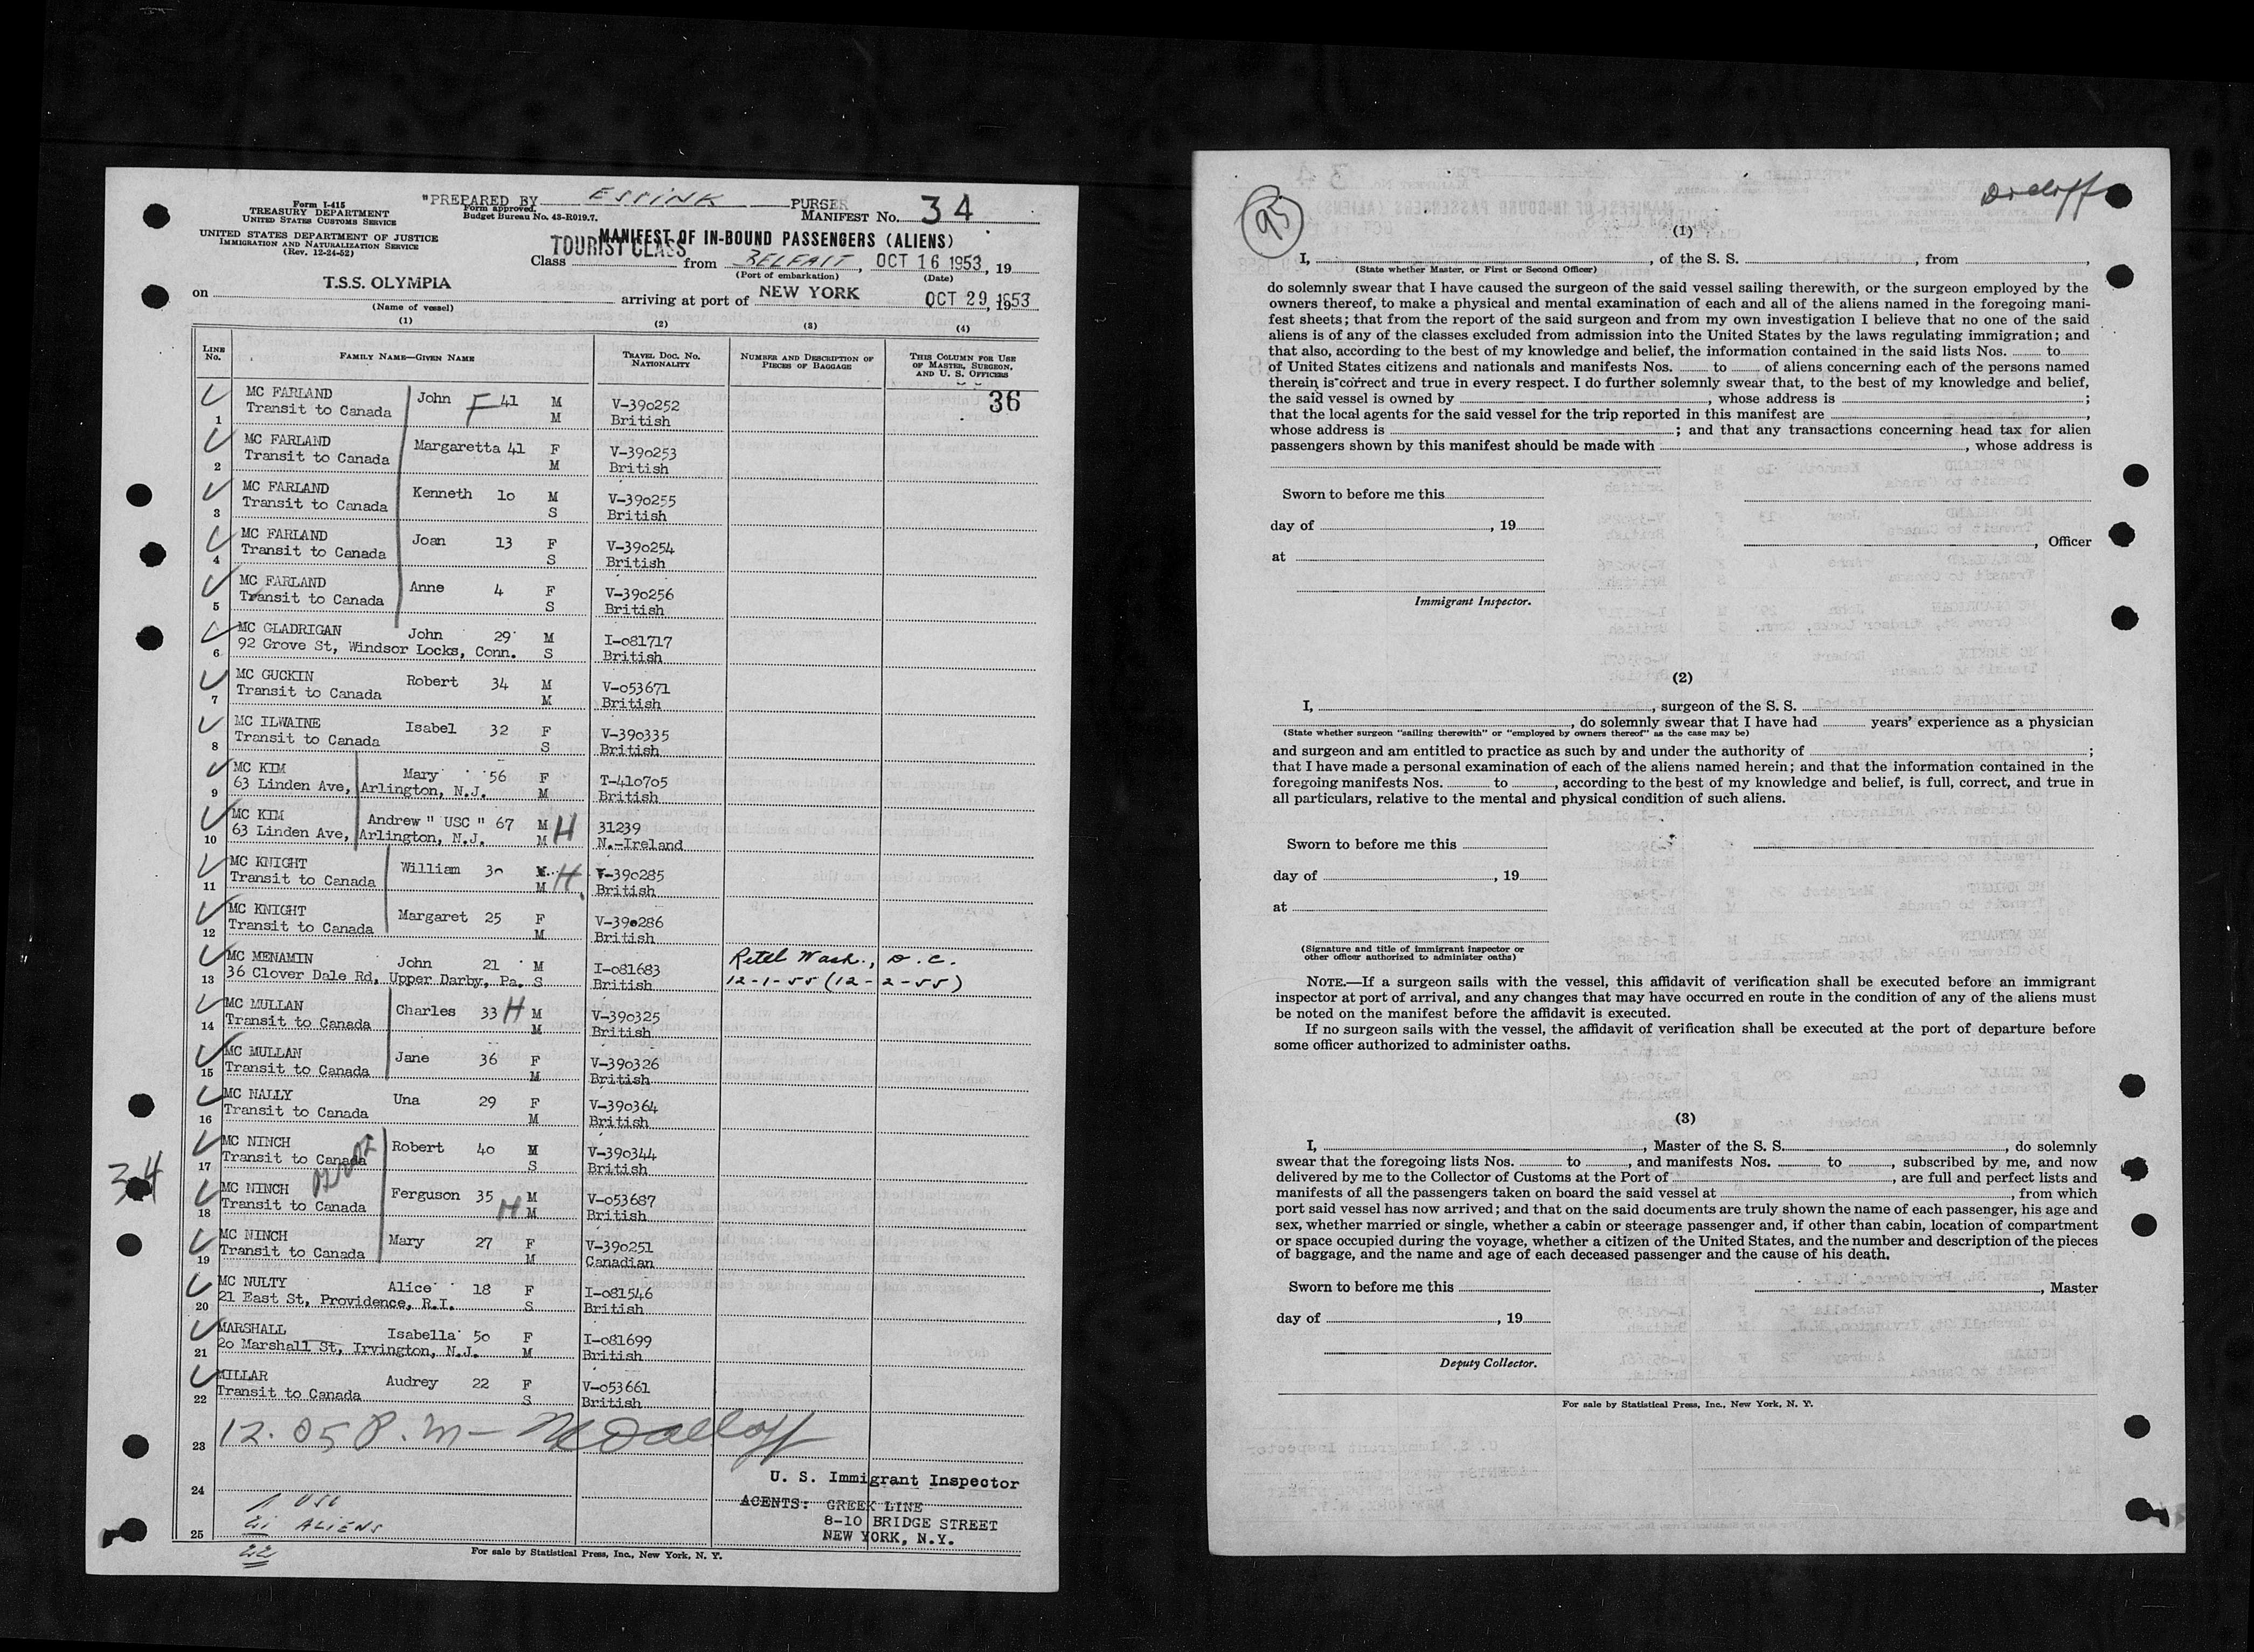 Form I-415
TREASURY DEPARTMENT
UNITED STATES CUSTOMS SERVICE
UNITED STATES DEPARTMENT OF JUSTICE
IMMIGRATION AND NATURALIZATION SERVICE
(Rev. 12-24-52)
"PREPARED BY ESSINK PURSER
Form approved.
Budget Bureau No. 43-R019.7.
MANIFEST No. 34
MANIFEST OF IN-BOUND PASSENGERS (ALIENS)
TOURIST CLASS
Class from BELFAST, OCT 16 1953, 19
(Port of embarkation) (Date)
on T.S.S. OLYMPIA arriving at port of NEW YORK OCT 29, 1953
(Name of vessel)
(1) (2) (3) (4)
LINE No. FAMILY NAME—GIVEN NAME TRAVEL DOC. NO. NATIONALITY NUMBER AND DESCRIPTION OF PIECES OF BAGGAGE THIS COLUMN FOR USE OF MASTER, SURGEON, AND U. S. OFFICERS
36
MC FARLAND John F 41 M V-390252
1 Transit to Canada M British
MC FARLAND Margaretta 41 F V-390253
2 Transit to Canada M British
MC FARLAND Kenneth 10 M V-390255
3 Transit to Canada S British
MC FARLAND Joan 13 F V-390254
4 Transit to Canada S British
MC FARLAND Anne 4 F V-390256
5 Transit to Canada S British
MC GLADRIGAN John 29 M I-081717
6 92 Grove St, Windsor Locks, Conn. S British
MC GUCKIN Robert 34 M V-053671
7 Transit to Canada M British
MC ILWAINE Isabel 32 F V-390335
8 Transit to Canada S British
MC KIM Mary 56 F T-410705
9 63 Linden Ave, Arlington, N.J. M British
MC KIM Andrew " USC " 67 M H 31239
10 63 Linden Ave, Arlington, N.J. M N.-Ireland
MC KNIGHT William 30 M H V-390285
11 Transit to Canada M British
MC KNIGHT Margaret 25 F V-390286
12 Transit to Canada M British
MC MENAMIN John 21 M I-081683 Retel Wash., D.C.
13 36 Clover Dale Rd, Upper Darby, Pa. S British 12-1-55 (12-2-55)
MC MULLAN Charles 33 H M V-390325
14 Transit to Canada M British
MC MULLAN Jane 36 F V-390326
15 Transit to Canada M British
MC NALLY Una 29 F V-390364
16 Transit to Canada M British
MC NINCH Robert 40 M V-390344
17 Transit to Canada S British
34
MC NINCH Ferguson 35 M V-053687
18 Transit to Canada H M British
MC NINCH Mary 27 F V-390251
19 Transit to Canada M Canadian
MC NULTY Alice 18 F I-081546
20 21 East St, Providence, R.I. S British
MARSHALL Isabella 50 F I-081699
21 20 Marshall St, Irvington, N.J. M British
MILLAR Audrey 22 F V-053661
22 Transit to Canada S British
23 12.05 P.m-
U. S. Immigrant Inspector
24
1 USC
21 ALIENS
25
22
AGENTS: GREEK LINE
8-10 BRIDGE STREET
NEW YORK, N.Y.
For sale by Statistical Press, Inc., New York, N. Y.
95
(1)
I, , of the S. S. , from ,
(State whether Master, or First or Second Officer)
do solemnly swear that I have caused the surgeon of the said vessel sailing therewith, or the surgeon employed by the
owners thereof, to make a physical and mental examination of each and all of the aliens named in the foregoing mani-
fest sheets; that from the report of the said surgeon and from my own investigation I believe that no one of the said
aliens is of any of the classes excluded from admission into the United States by the laws regulating immigration; and
that also, according to the best of my knowledge and belief, the information contained in the said lists Nos. to
of United States citizens and nationals and manifests Nos. to of aliens concerning each of the persons named
therein is correct and true in every respect. I do further solemnly swear that, to the best of my knowledge and belief,
the said vessel is owned by , whose address is ;
that the local agents for the said vessel for the trip reported in this manifest are ,
whose address is ; and that any transactions concerning head tax for alien
passengers shown by this manifest should be made with , whose address is
Sworn to before me this
day of , 19
, Officer
at
Immigrant Inspector.
(2)
I, , surgeon of the S. S.
, do solemnly swear that I have had years' experience as a physician
(State whether surgeon "sailing therewith" or "employed by owners thereof" as the case may be)
and surgeon and am entitled to practice as such by and under the authority of ;
that I have made a personal examination of each of the aliens named herein; and that the information contained in the
foregoing manifests Nos. to , according to the best of my knowledge and belief, is full, correct, and true in
all particulars, relative to the mental and physical condition of such aliens.
Sworn to before me this
day of , 19
at
(Signature and title of immigrant inspector or
other officer authorized to administer oaths)
NOTE.—If a surgeon sails with the vessel, this affidavit of verification shall be executed before an immigrant
inspector at port of arrival, and any changes that may have occurred en route in the condition of any of the aliens must
be noted on the manifest before the affidavit is executed.
If no surgeon sails with the vessel, the affidavit of verification shall be executed at the port of departure before
some officer authorized to administer oaths.
(3)
I, , Master of the S. S. , do solemnly
swear that the foregoing lists Nos. to , and manifests Nos. to , subscribed by me, and now
delivered by me to the Collector of Customs at the Port of , are full and perfect lists and
manifests of all the passengers taken on board the said vessel at , from which
port said vessel has now arrived; and that on the said documents are truly shown the name of each passenger, his age and
sex, whether married or single, whether a cabin or steerage passenger and, if other than cabin, location of compartment
or space occupied during the voyage, whether a citizen of the United States, and the number and description of the pieces
of baggage, and the name and age of each deceased passenger and the cause of his death.
Sworn to before me this
, Master
day of , 19
Deputy Collector.
For sale by Statistical Press, Inc., New York, N. Y.